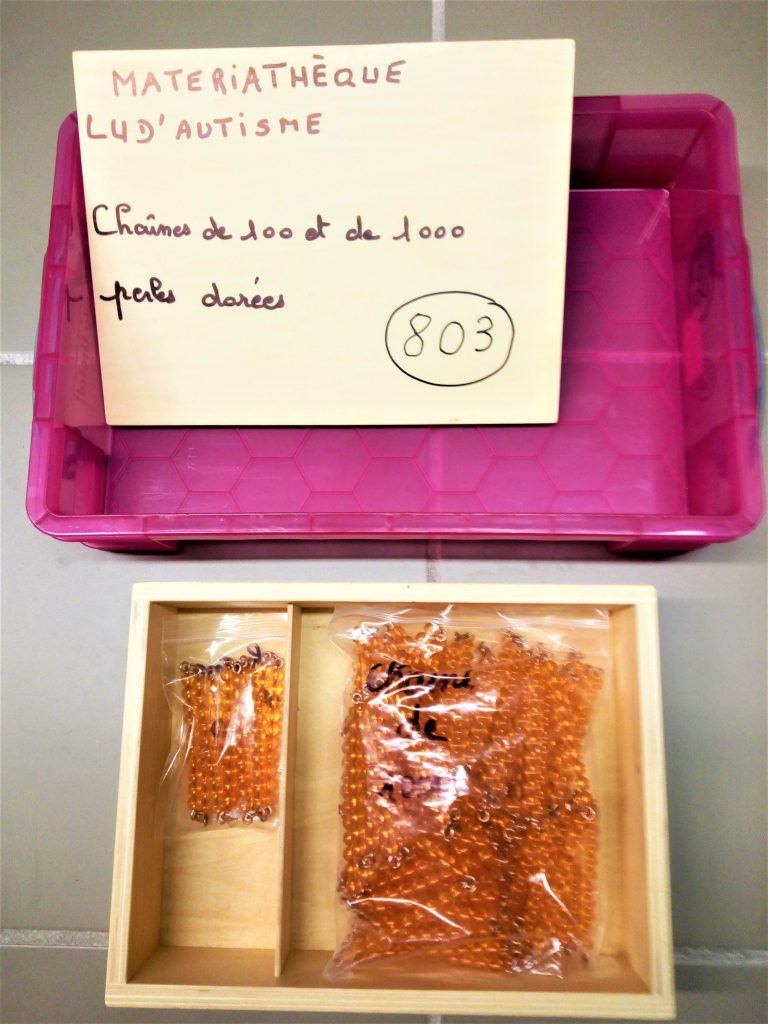 MATERIATHÈQUE
LUD'AUTISME
Chaînes de 100 et de 1000
perles dorées
803
Chaîne
de